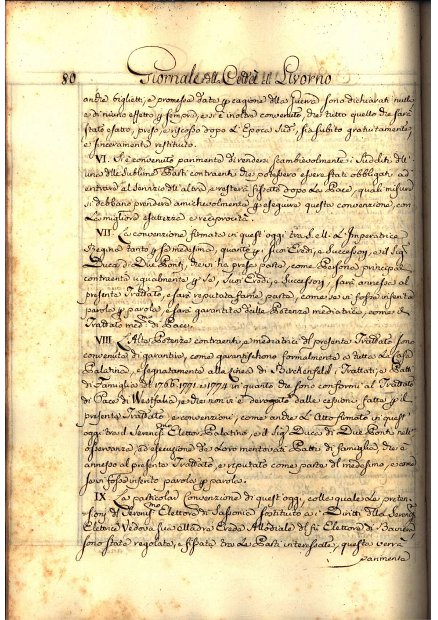 80 Giornale della Città di Livorno
anche biglietti, e promesse date per cagione della Guerra sono dichiarati nulli
e di niuno effetto per sempre, e si è inoltre convenuto, che tutto quello che sarà
stato esatto, preso, e riscosso dopo l'Epoca Sud.ª, sia subito gratuitamente,
e sinceramente restituito.
VI. Si è convenuto parimente di rendere scambievolmente i Sudditi dell'
una delle Sublimi Parti contraenti che potessero essere stati obbligati ad
entrare al Servizio dell'altra, e resterà fissato dopo la Pace, quali misure
si debbano prendere amichevolmente per eseguire questa convenzione, con
la migliore esattezza e reciprocità.
VII La convenzione firmata in quest'oggi tra S.M. L'Imperatrice
Regina tanto per se medesima, quanto per i suoi Eredi, e Successori, e il Sig.
Duca di Due Ponti, che vi ha preso parte, come Persona principal
contraente ugualmente per Se, suoi Eredi, e Successori, sarà annessa al
presente Trattato, e sarà reputata farne parte, come se vi fosse inserita
parola per parola, e sarà garantita dalle Potenze mediatrici, come il
Trattato med.º di Pace.
VIII L'Alte Potenze contraenti, e mediatrici del presente Trattato sono
convenute di garantire, come garantiscono formalmente a tutta la Casa
Palatina, e segnatamente alla linea di Birchenfeld, i Trattati, e Patti
di Famiglia del 1766. 1771. e 1774 in quanto che sono conformi al Trattato
di Pace di Westfalia, e che non vi è derogato dalle cessioni fatte per il
presente Trattato e convenzioni, come anche L'Atto firmato in quest'
oggi tra il Sereniss.º Elettor Palatino, e il Sig. Duca di Due Ponti nell'
osservanza, ed esecuzione dei Loro mentovati Patti di famiglia, che è
annesso al presente Trattato, e riputato come parte del medesimo, e come
se vi fosse inserito parola per parola.
IX La particolar Convenzione di quest'oggi, colla quale La preten-
sioni del Sereniss.º Elettore di Sassonia sostituito ai Diritti della Sereniss.ª
Elettrice Vedova sua Madre Erede Allodiale del fù Elettore di Baviera
sono state regolate, e fissate tra Le Parti interessate, questa verrà
parimente